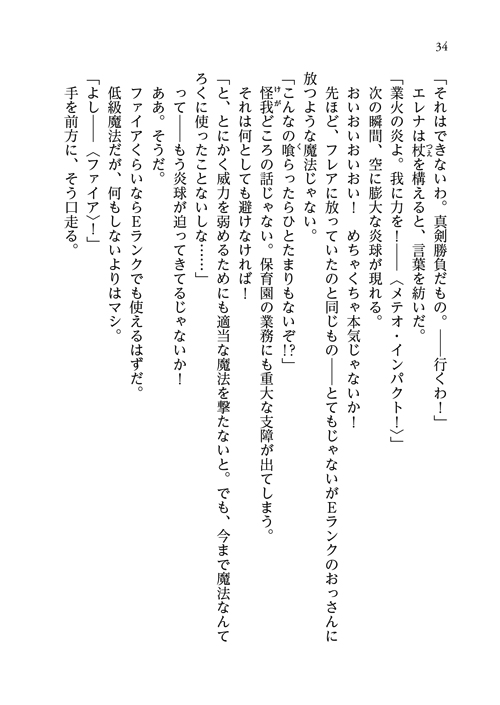 34
「それはできないわ。真剣勝負だもの。――行くわ！」
エレナは杖を構えると、言葉を紡いだ。
「業火の炎よ。我に力を！――〈メテオ・インパクト！〉」
次の瞬間、空に膨大な炎球が現れる。
おいおいおいおい！　めちゃくちゃ本気じゃないか！
先ほど、フレアに放っていたのと同じもの――とてもじゃないがEランクのおっさんに
放つような魔法じゃない。
「こんなの喰らったらひとたまりもないぞ!?」
怪我どころの話じゃない。保育園の業務にも重大な支障が出てしまう。
それは何としても避けなければ！
「と、とにかく威力を弱めるためにも適当な魔法を撃たないと。でも、今まで魔法なんて
ろくに使ったことないしな……」
って――もう炎球が迫ってきてるじゃないか！
ああ。そうだ。
ファイアくらいならEランクでも使えるはずだ。
低級魔法だが、何もしないよりはマシ。
「よし――〈ファイア〉！」
手を前方に、そう口走る。